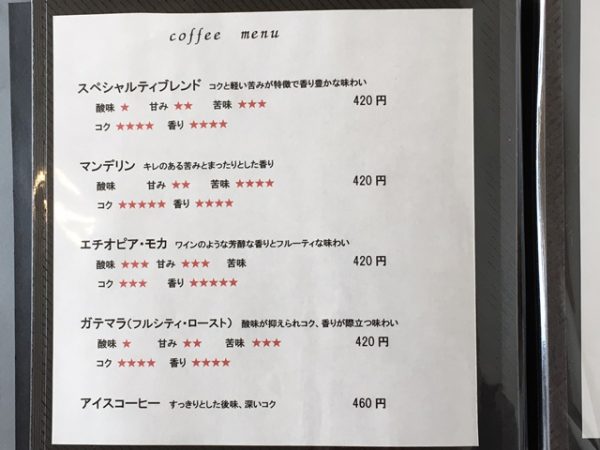 coffee menu
スペシャルティブレンド コクと軽い苦みが特徴で香り豊かな味わい
酸味 ★ 甘み ★★ 苦味 ★★★ 420 円
コク ★★★★ 香り ★★★★
マンデリン キレのある苦みとまったりとした香り
酸味 甘み ★★ 苦味 ★★★★ 420 円
コク ★★★★★ 香り ★★★★
エチオピア・モカ ワインのような芳醇な香りとフルーティな味わい
酸味 ★★★ 甘み ★★★ 苦味 420 円
コク ★★★ 香り ★★★★★
ガテマラ(フルシティ・ロースト) 酸味が抑えられコク、香りが際立つ味わい
酸味 ★ 甘み ★★ 苦味 ★★★ 420 円
コク ★★★★ 香り ★★★★
アイスコーヒー すっきりとした後味、深いコク 460 円